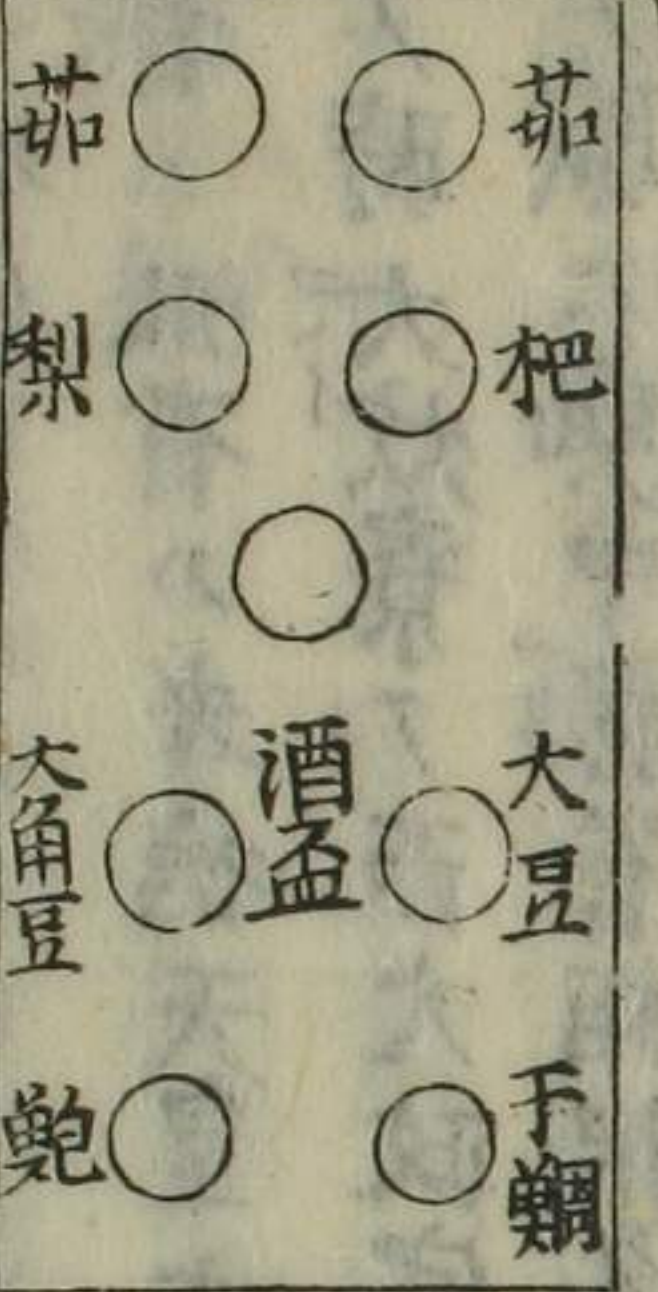 茄
杷
大豆
干鯛
酒盃
茄
梨
大角豆
鮑